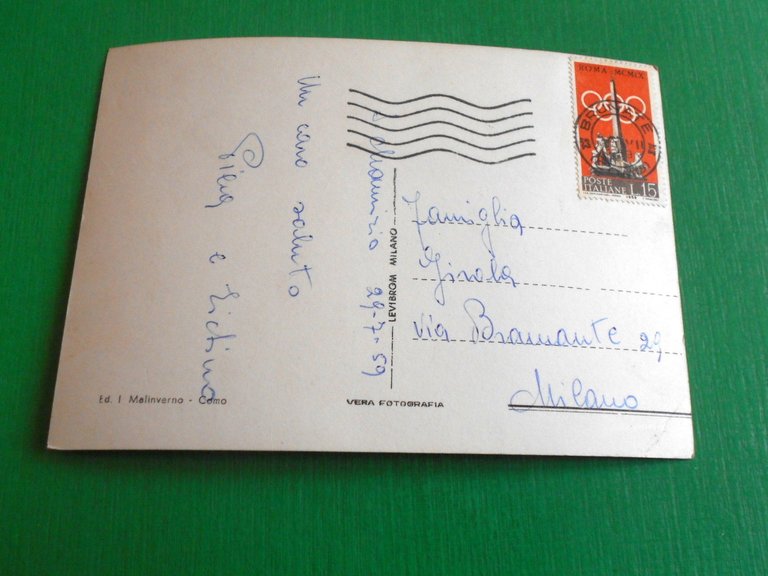 S. Maurizio 29-7-59
Un caro saluto
Piera e
Famiglia
Girola
via Bramante 29
Milano
ROMA · MCMLX
POSTE
ITALIANE L.15
BRUNATE
LEVIBROM MILANO
VERA FOTOGRAFIA
Ed. I Malinverno - Como